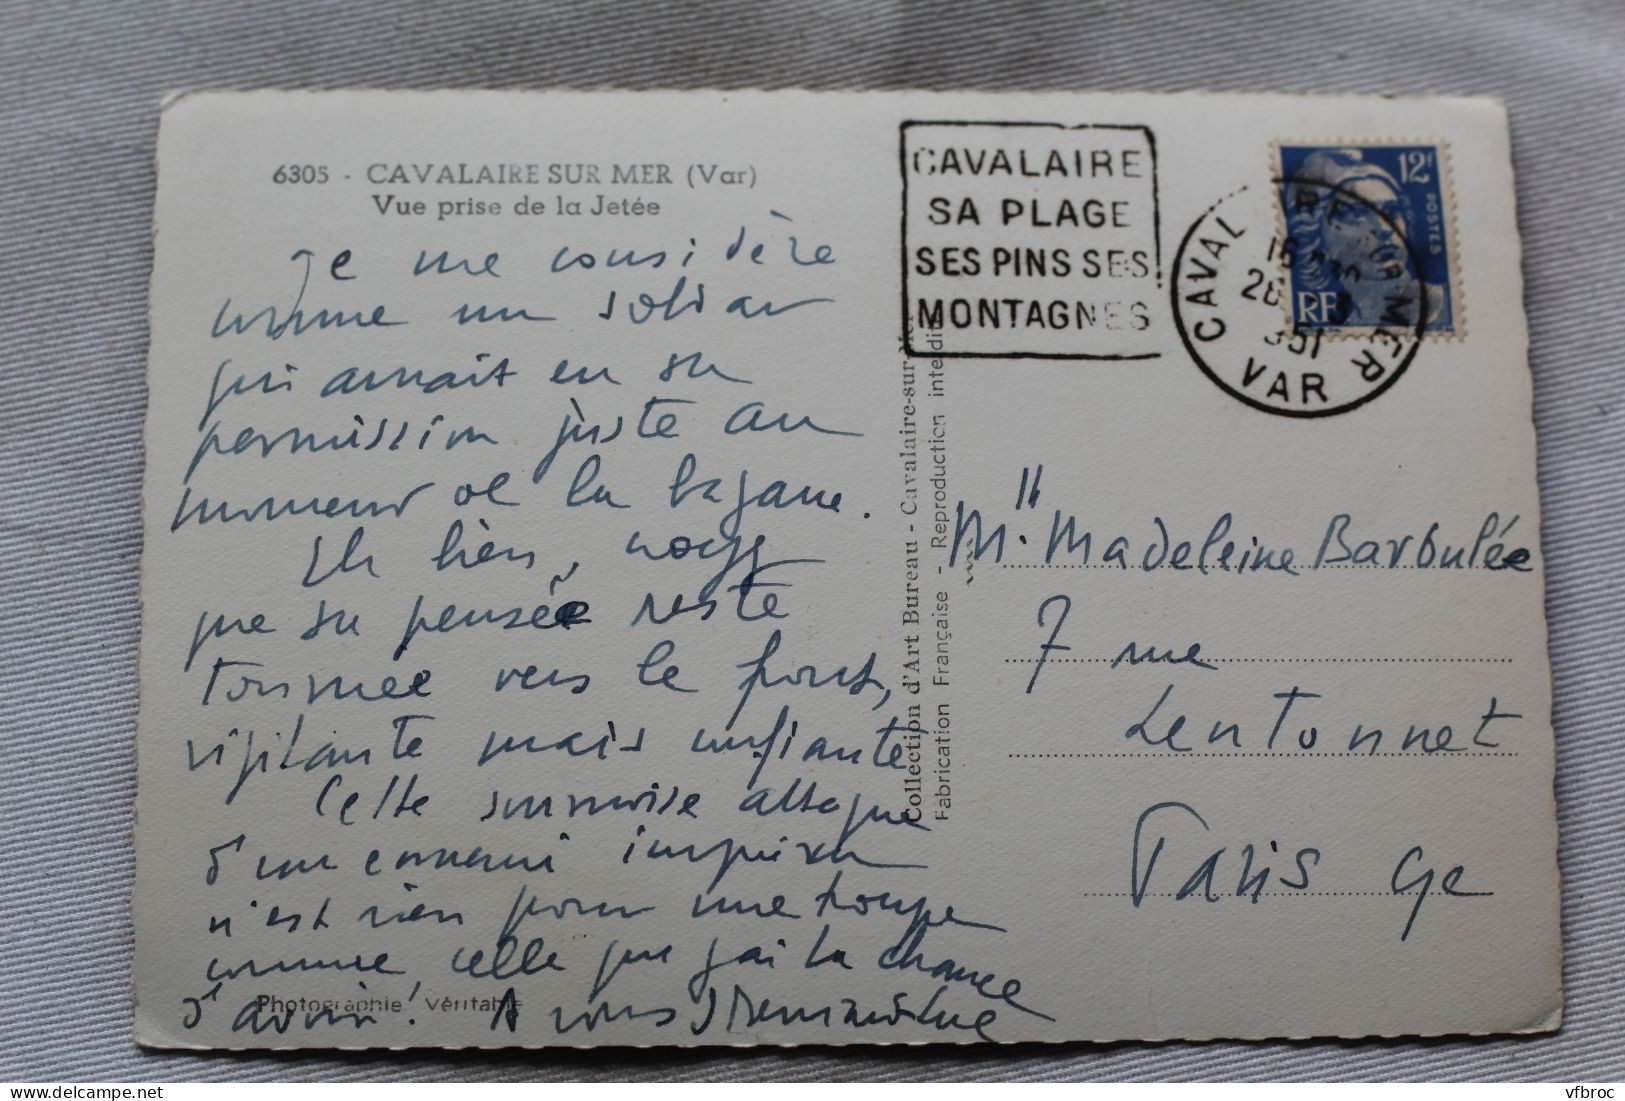 6305 - CAVALAIRE SUR MER (Var)
Vue prise de la Jetée
Je me considère
comme un soldat
qui aurait eu sa
permission juste au
moment de la bagarre.
Eh bien, voyez
que sa pensée reste
tournée vers le front,
vigilante mais confiante
Cette sournoise attaque
d'un ennemi imprévu
n'est rien pour une troupe
comme celle que j'ai la chance
d'avoir! A vous
Photographie Véritable
CAVALAIRE
SA PLAGE
SES PINS SES
MONTAGNES
CAVALAIRE SUR MER
VAR
12F
POSTES
RF
Collection d'Art Bureau - Cavalaire-sur-Mer
Fabrication Française - Reproduction interdite
Mlle Madeleine Barbulée
7 rue
Lentonnet
Paris 9e
vfbroc